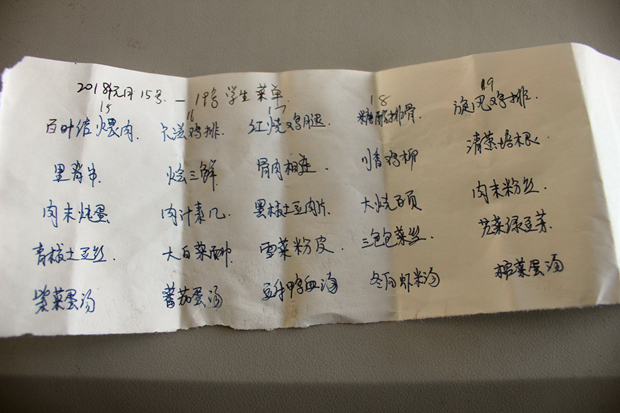 2018年元月15号 — 19号 学生菜单
15 16 17 18 19
百叶结煨肉 鸡排 红烧鸡腿 糖醋排骨 旋风鸡排
里脊串 烩三鲜 骨肉相连 川香鸡柳 清蒸培根
肉末炖蛋 肉汁素几 黑椒土豆肉片 大烧 肉末粉丝
青椒土豆丝 大白菜 雪菜粉皮 三色包菜丝 芹菜绿豆芽
紫菜蛋汤 蕃茄蛋汤 鸭血汤 冬瓜虾米汤 榨菜蛋汤